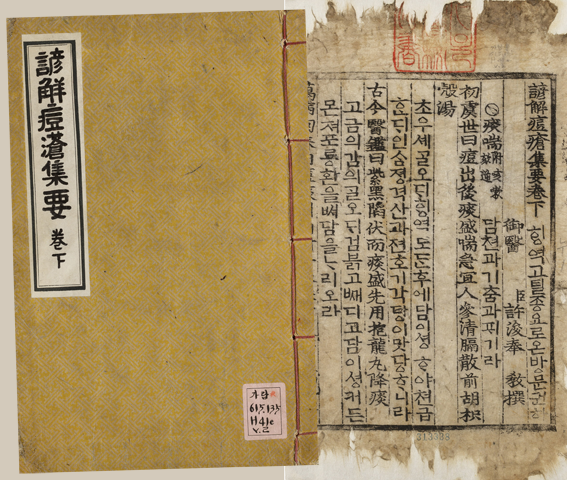 諺解痘瘡集要 卷下
615.135
v.2
諺解痘瘡集要卷下
ᄒᆡᆼ역고틸종요로온방문권하
御醫 臣 許浚奉 敎撰
痰喘 담쳔과기춤과픠기라
初虞世曰痘出後痰盛喘急宜人參清膈散前胡枳
殼湯
초우셰ᄀᆞᆯ오ᄃᆡᄒᆡᆼ역도ᄃᆞᆫ후에담이셩ᄒᆞ야쳔급
ᄒᆞ인ᄉᆞᆷ쳥격산과젼호기각탕이맛당ᄒᆞ니라
古今醫鑑曰紫黑陷伏而痰盛先用抱龍丸降痰
고금의감의ᄀᆞᆯ오ᄃᆡ검붉고ᄢᅥ디고담이셩커든
몬져포룡환을ᄡᅥ담을ᄂᆞ리오라